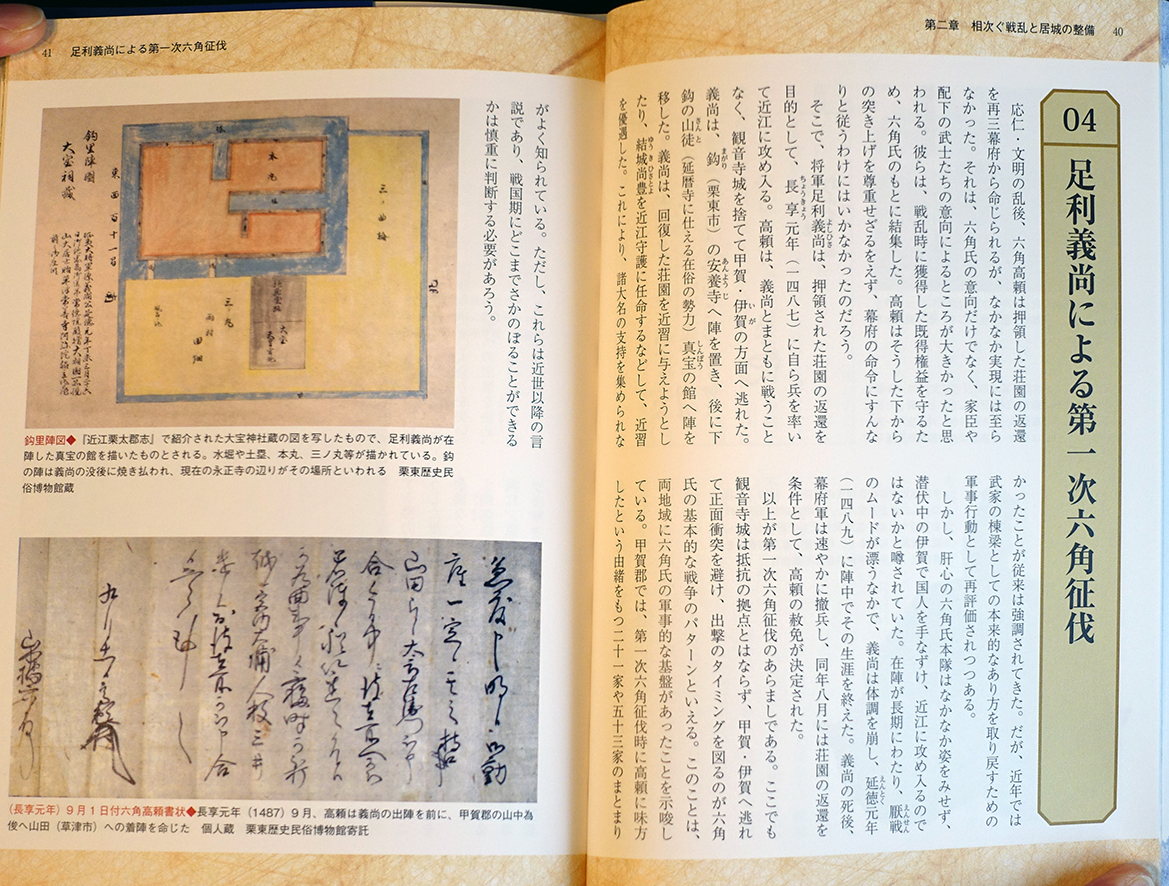 第二章　相次ぐ戦乱と居城の整備　40
04
足利義尚による第一次六角征伐
応仁・文明の乱後、六角高頼は押領した荘園の返還
を再三幕府から命じられるが、なかなか実現には至ら
なかった。それは、六角氏の意向だけでなく、家臣や
配下の武士たちの意向によるところが大きかったと思
われる。彼らは、戦乱時に獲得した既得権益を守るた
め、六角氏のもとに結集した。高頼はそうした下から
の突き上げを尊重せざるをえず、幕府の命令にすんな
りと従うわけにはいかなかったのだろう。
そこで、将軍足利義尚は、押領された荘園の返還を
目的として、長享元年（一四八七）に自ら兵を率い
て近江に攻め入る。高頼は、義尚とまともに戦うこと
なく、観音寺城を捨てて甲賀・伊賀の方面へ逃れた。
義尚は、鈎（栗東市）の安養寺へ陣を置き、後に下
鈎の山徒（延暦寺に仕える在俗の勢力）真宝の館へ陣を
移した。義尚は、回復した荘園を近習に与えようとし
たり、結城尚豊を近江守護に任命するなどして、近習
を優遇した。これにより、諸大名の支持を集められな
かったことが従来は強調されてきた。だが、近年では
武家の棟梁としての本来的なあり方を取り戻すための
軍事行動として再評価されつつある。
しかし、肝心の六角氏本隊はなかなか姿をみせず、
潜伏中の伊賀で国人を手なずけ、近江に攻め入るので
はないかと噂されていた。在陣が長期にわたり、厭戦
のムードが漂うなかで、義尚は体調を崩し、延徳元年
（一四八九）に陣中でその生涯を終えた。義尚の死後、
幕府軍は速やかに撤兵し、同年八月には荘園の返還を
条件として、高頼の赦免が決定された。
以上が第一次六角征伐のあらましである。ここでも
観音寺城は抵抗の拠点とはならず、甲賀・伊賀へ逃れ
て正面衝突を避け、出撃のタイミングを図るのが六角
氏の基本的な戦争のパターンといえる。このことは、
両地域に六角氏の軍事的な基盤があったことを示唆し
ている。甲賀郡では、第一次六角征伐時に高頼に味方
したという由緒をもつ二十一家や五十三家のまとまり
41　足利義尚による第一次六角征伐
がよく知られている。ただし、これらは近世以降の言
説であり、戦国期にどこまでさかのぼることができる
かは慎重に判断する必要があろう。
鈎里陣圖
大宝祠蔵
東西百十一間
本丸
三ノ曲輪
三ノ丸
田畑
大宝
北
鈎里陣図◆『近江栗太郡志』で紹介された大宝神社蔵の図を写したもので、足利義尚が在
陣した真宝の館を描いたものとされる。水堀や土塁、本丸、三ノ丸等が描かれている。鈎
の陣は義尚の没後に焼き払われ、現在の永正寺の辺りがその場所といわれる　栗東歴史民
俗博物館蔵
（長享元年）９月１日付六角高頼書状◆長享元年（1487）９月、高頼は義尚の出陣を前に、甲賀郡の山中為
俊へ山田（草津市）への着陣を命じた　個人蔵　栗東歴史民俗博物館寄託